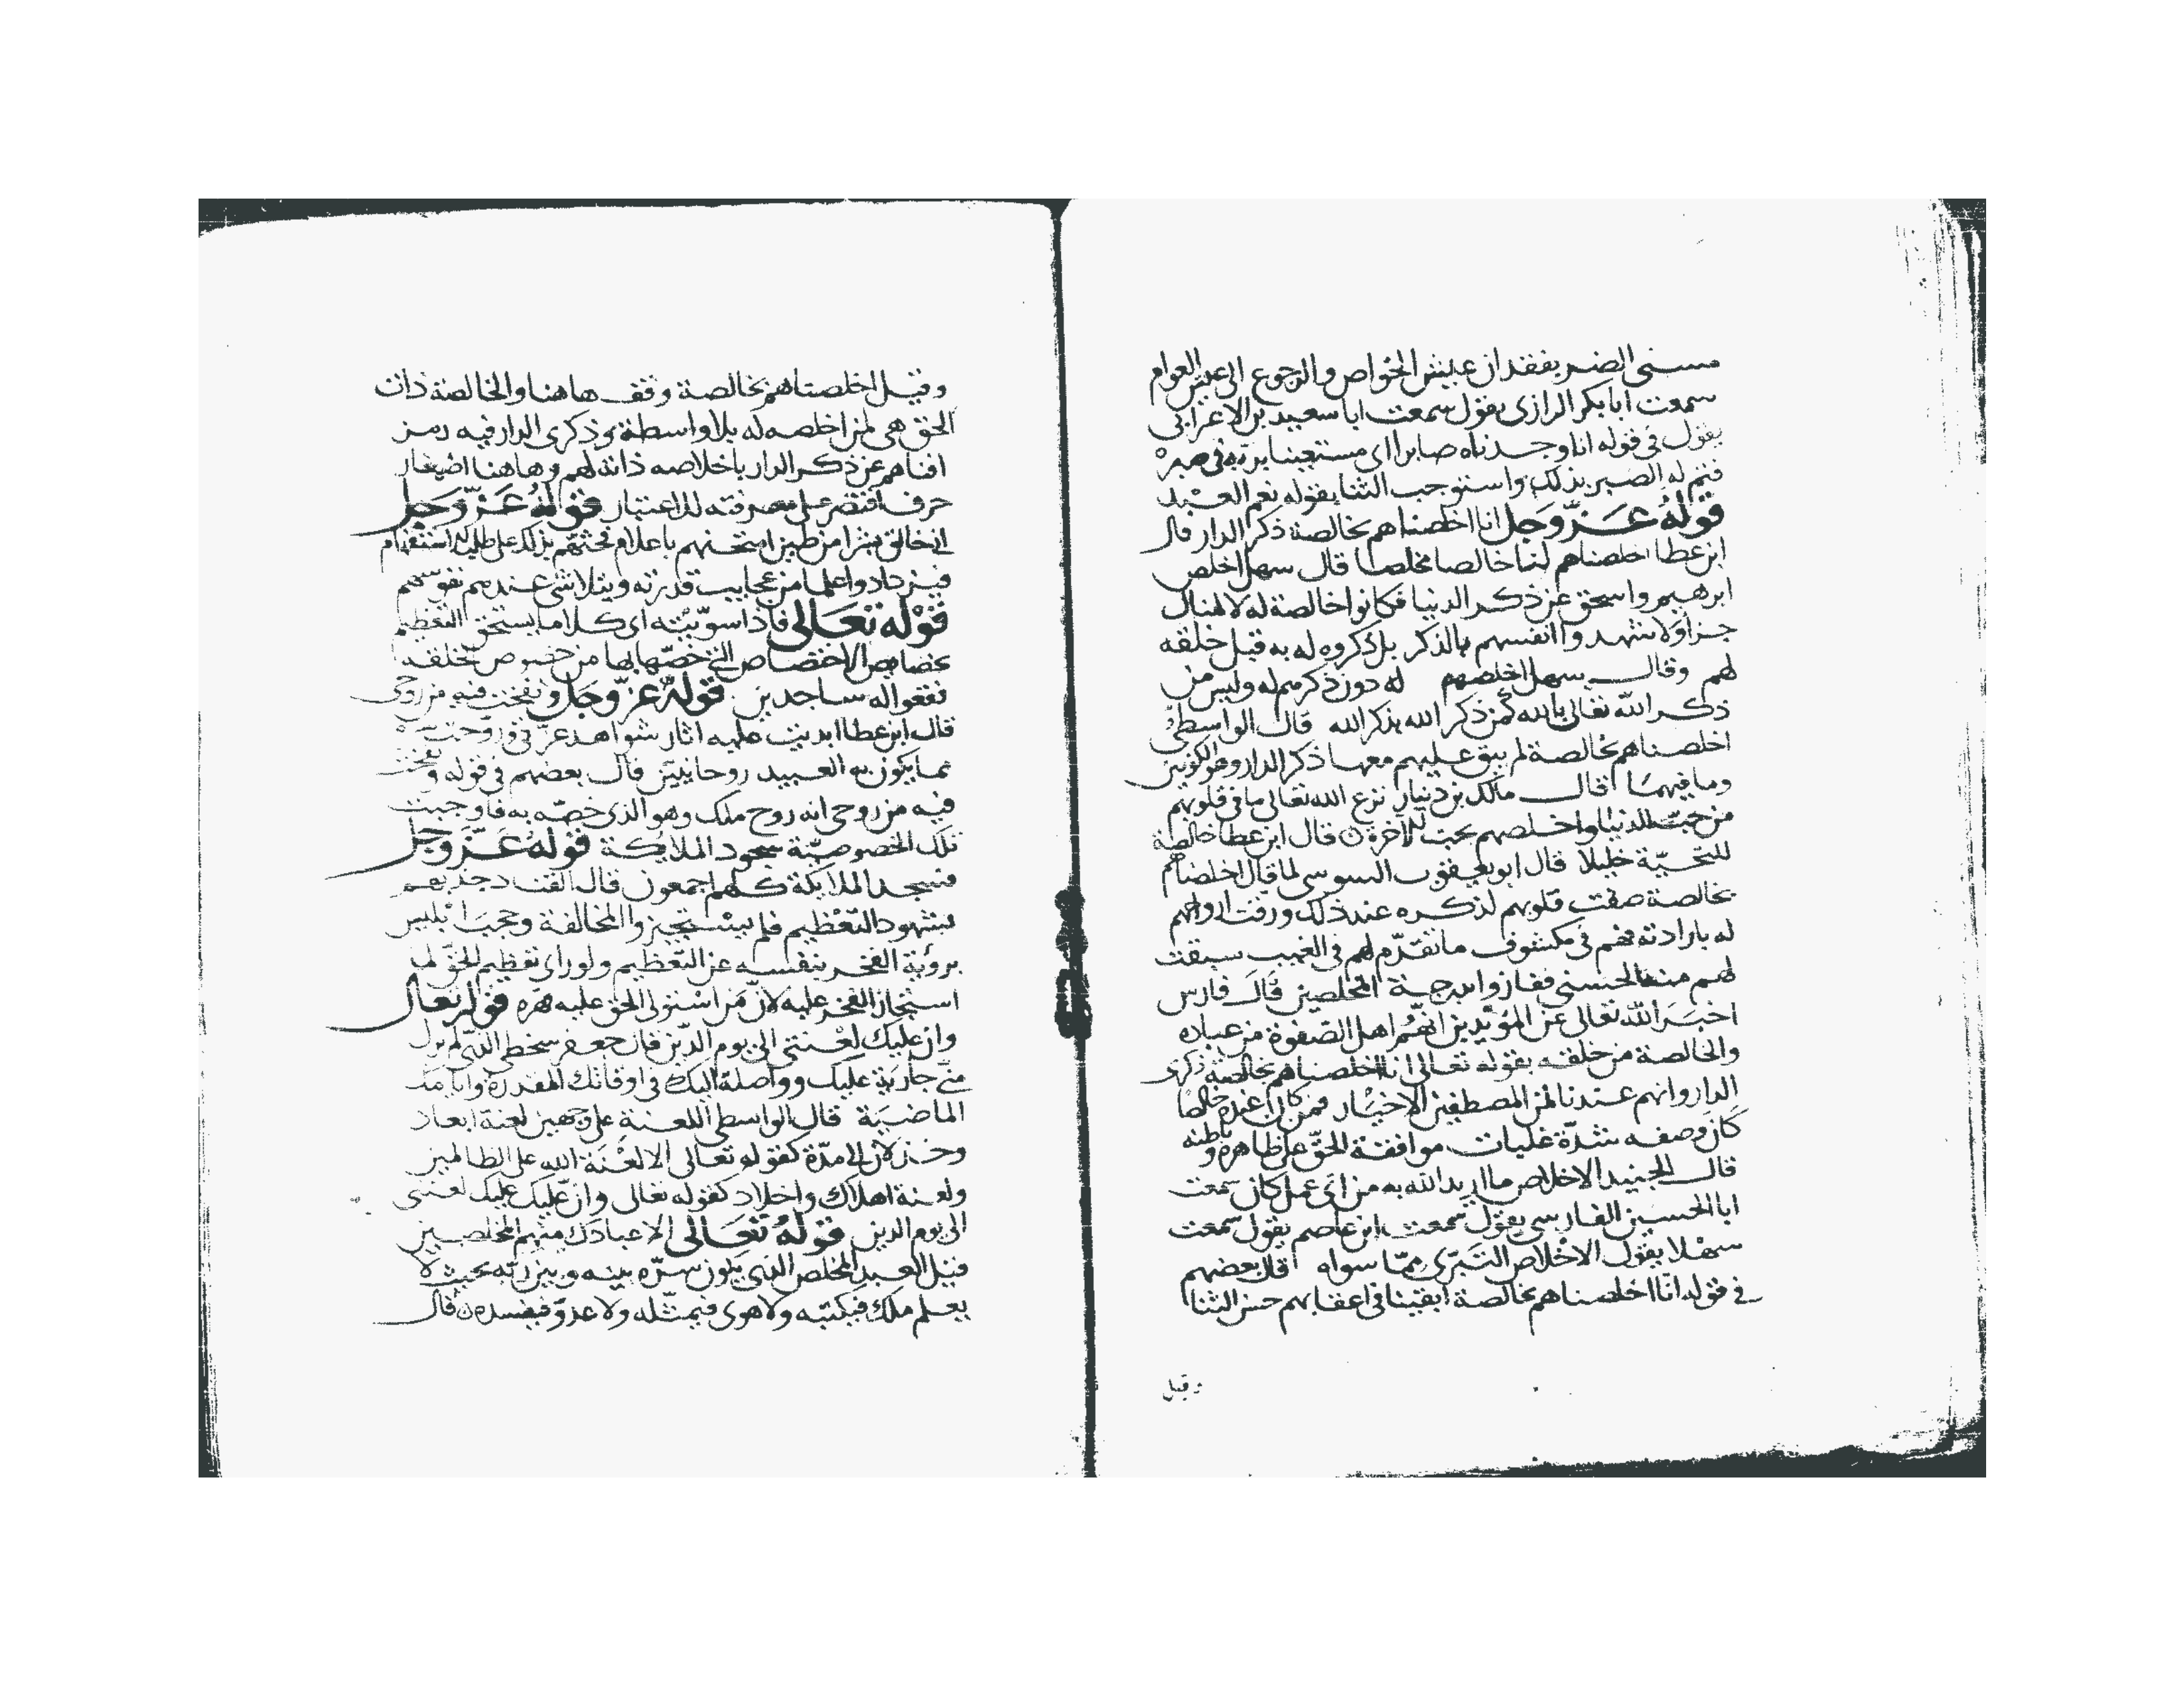 مسنى الضر بفقدان عيش الخواص والرجوع الى عيش العوام
سمعت ابا بكر الرازى يقول سمعت ابا سعيد بن الاعرابى
يقول فى قوله انا وجدناه صابرا اى مستعينا بربه فى صبره
فتم له الصبر بذلك واستوجب الثنا بقوله نعم العبد
قوله عز وجل انا اخلصناهم بخالصة ذكر الدار قال
ابن عطا اخلصناهم لنا خالصا مخلصا قال سهل اخلص
ابرهيم واسحق عن ذكر الدنيا فكانوا خالصة له لا لمنال
جزا ولا شهدوا انفسهم بالذكر بل ذكروه له به قبل خلقه
لهم وقال سهل اخلصهم له دون ذكرهم له وليس من
ذكر الله تعالى بالله كمن ذكر الله بذكر الله قال الواسطى
اخلصناهم بخالصة لم يبق عليهم معها ذكر الدار وهو الكونين
وما فيهما قال مالك بن دينار نزع الله تعالى ما فى قلوبهم
من حب الدنيا واخلصهم بحب الاخرة قال ابن عطا خالصة
خليلا قال ابو يعقوب السوسى لما قال اخلصناهم
بخالصة صفت قلوبهم لذكره عند ذلك ورقت ارواحهم
له بارادته فهم فى مكشوف ما تقدم لهم فى الغيب سبقت
لهم منا الحسنى ففازوا بدرجة المخلصين قال فارس
اخبر الله تعالى عن المؤيدين انهم اهل الصفوة من عباده
والخالصة من خلقه بقوله تعالى انا اخلصناهم بخالصة ذكرى
الدار وانهم عندنا لمن المصطفين الاخيار فمن كان عنده خالصا
كان وصفه شدة غلبات موافقة الحق على ظاهره وباطنه
قال الجنيد الاخلاص ما اريد الله به من اى عمل كان سمعت
ابا الحسين الفارسى يقول سمعت ابن عاصم يقول سمعت
سهلا يقول الاخلاص التبرى مما سواه قال بعضهم
فى قوله انا اخلصناهم بخالصة ابقينا فى اعقابهم حسن الثنا
وقيل
وقيل اخلصناهم بخالصة وقف هاهنا والخالصة ذات
الحق هى لمن اخلصه له بلا واسطة وذكرى الدار فيه رمز
افناهم عن ذكر الدار باخلاصه ذاته لهم وهاهنا اضمار
حرف اقتصر على معرفته للاعتبار قوله عز وجل
انى خالق بشرا من طين امتحنهم باعلام فحثهم بذلك على طلب الاستفهام
فيزدادوا علما من عجايب قدرته ويتلاشى عندهم نفوسهم
قوله تعالى فاذا سويته اى كلاما يستحق التعظيم
بخصايص الاختصاص التى خصها بها من خصوص الخلقة
فقعوا له ساجدين قوله عز وجل ونفخت فيه من روحى
قال ابن عطا ابديت عليه اثار شواهد عزتى وروحت سره
بما يكون به العبيد روحانيين قال بعضهم فى قوله ونفخت
فيه من روحى انه روح ملك وهو الذى خصه به فاوجبت
تلك الخصوصية سجود الملايكة قوله عز وجل
فسجد الملايكة كلهم اجمعون قال القناد جذبهم
بشهود التعظيم فلم يستجيزوا المخالفة وحجب ابليس
برؤية الفخر بنفسه عن التعظيم ولو راى تعظيم الحق لما
استجاز الفخر عليه لان من استولى الحق عليه قهره قوله تعالى
وان عليك لعنتى الى يوم الدين قال جعفر سخطى الذى لم يزل
منى جارية عليك وواصلة اليك فى اوقاتك المقدرة وايامك
الماضية قال الواسطى اللعنة على وجهين لعنة ابعاد
وخذلان الى مدة كقوله تعالى الا لعنة الله على الظالمين
ولعنة اهلاك واخلاد كقوله تعالى وان عليك عليك لعنتى
الى يوم الدين قوله تعالى الا عبادك منهم المخلصين
قيل العبد المخلص الذى يكون سره بينه وبين ربه بحيث لا
يعلم ملك فيكتبه ولا هوى فيمثله ولا عدو فيفسده قال